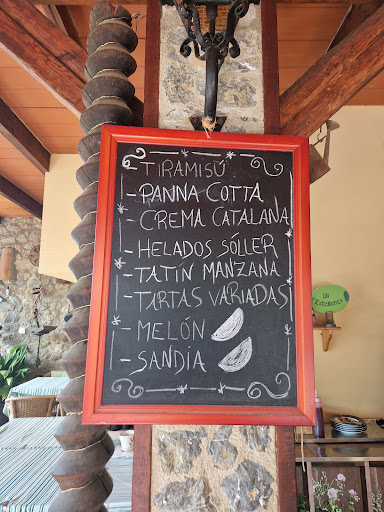 - TIRAMISÚ
- PANNA COTTA
- CREMA CATALANA
- HELADOS SÓLLER
- TATÍN MANZANA
- TARTAS VARIADAS
- MELÓN
- SANDÍA